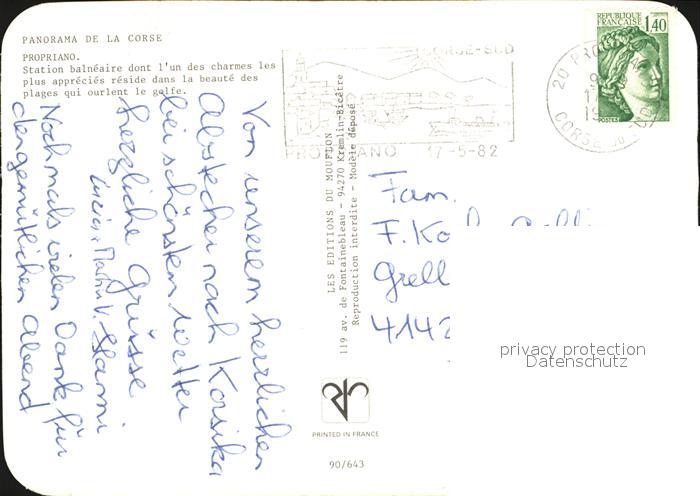 PANORAMA DE LA CORSE
PROPRIANO.
Station balnéaire dont l'un des charmes les
plus appréciés réside dans la beauté des
plages qui ourlent le golfe.
CORSE-SUD
PROPRIANO 17-5-82
REPUBLIQUE
FRANÇAISE
1,40
POSTES
20 PRO
CORSE DU SUD
Von unserem herrlichen
Abstecher nach Korsika
bei schönstem Wetter
herzliche Grüsse
Nochmals vielen Dank für
den gemütlichen Abend
LES EDITIONS DU MOUFLON
119 av. de Fontainebleau - 94270 Kremlin-Bicêtre
Reproduction interdite - Modèle déposé
Fam.
F. Ko
Grell
4142
privacy protection
Datenschutz
PRINTED IN FRANCE
90/643